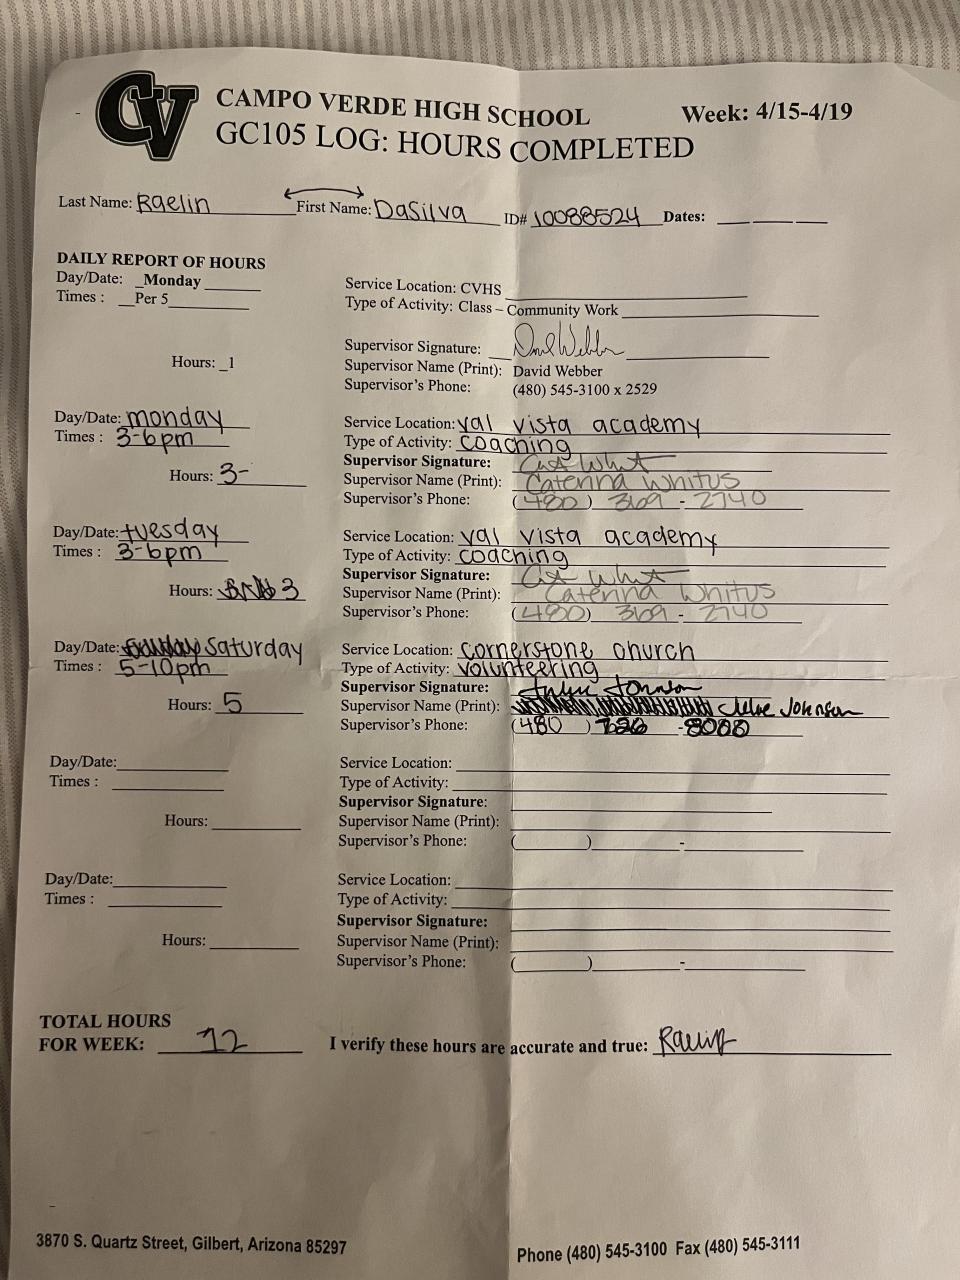 CV
CAMPO VERDE HIGH SCHOOL Week: 4/15-4/19
GC105 LOG: HOURS COMPLETED
Last Name: Raelin First Name: DaSilva ID# 10088524 Dates:
DAILY REPORT OF HOURS
Day/Date: Monday Service Location: CVHS
Times : Per 5 Type of Activity: Class – Community Work
Supervisor Signature:
Hours: 1 Supervisor Name (Print): David Webber
Supervisor's Phone: (480) 545-3100 x 2529
Day/Date: monday Service Location: val vista academy
Times : 3-6pm Type of Activity: coaching
Supervisor Signature:
Hours: 3- Supervisor Name (Print): Caterina Whitus
Supervisor's Phone: (480) 369 - 2740
Day/Date: tuesday Service Location: val vista academy
Times : 3-6pm Type of Activity: coaching
Supervisor Signature:
Hours: 3 Supervisor Name (Print): Caterina Whitus
Supervisor's Phone: (480) 369 - 2740
Day/Date: saturday Service Location: cornerstone church
Times : 5-10pm Type of Activity: volunteering
Supervisor Signature: Johnson
Hours: 5 Supervisor Name (Print): Johnson
Supervisor's Phone: (480 ) 726 -8000
Day/Date: Service Location:
Times : Type of Activity:
Supervisor Signature:
Hours: Supervisor Name (Print):
Supervisor's Phone: ( ) -
Day/Date: Service Location:
Times : Type of Activity:
Supervisor Signature:
Hours: Supervisor Name (Print):
Supervisor's Phone: ( ) -
TOTAL HOURS
FOR WEEK: 12 I verify these hours are accurate and true: Raelin
3870 S. Quartz Street, Gilbert, Arizona 85297 Phone (480) 545-3100 Fax (480) 545-3111